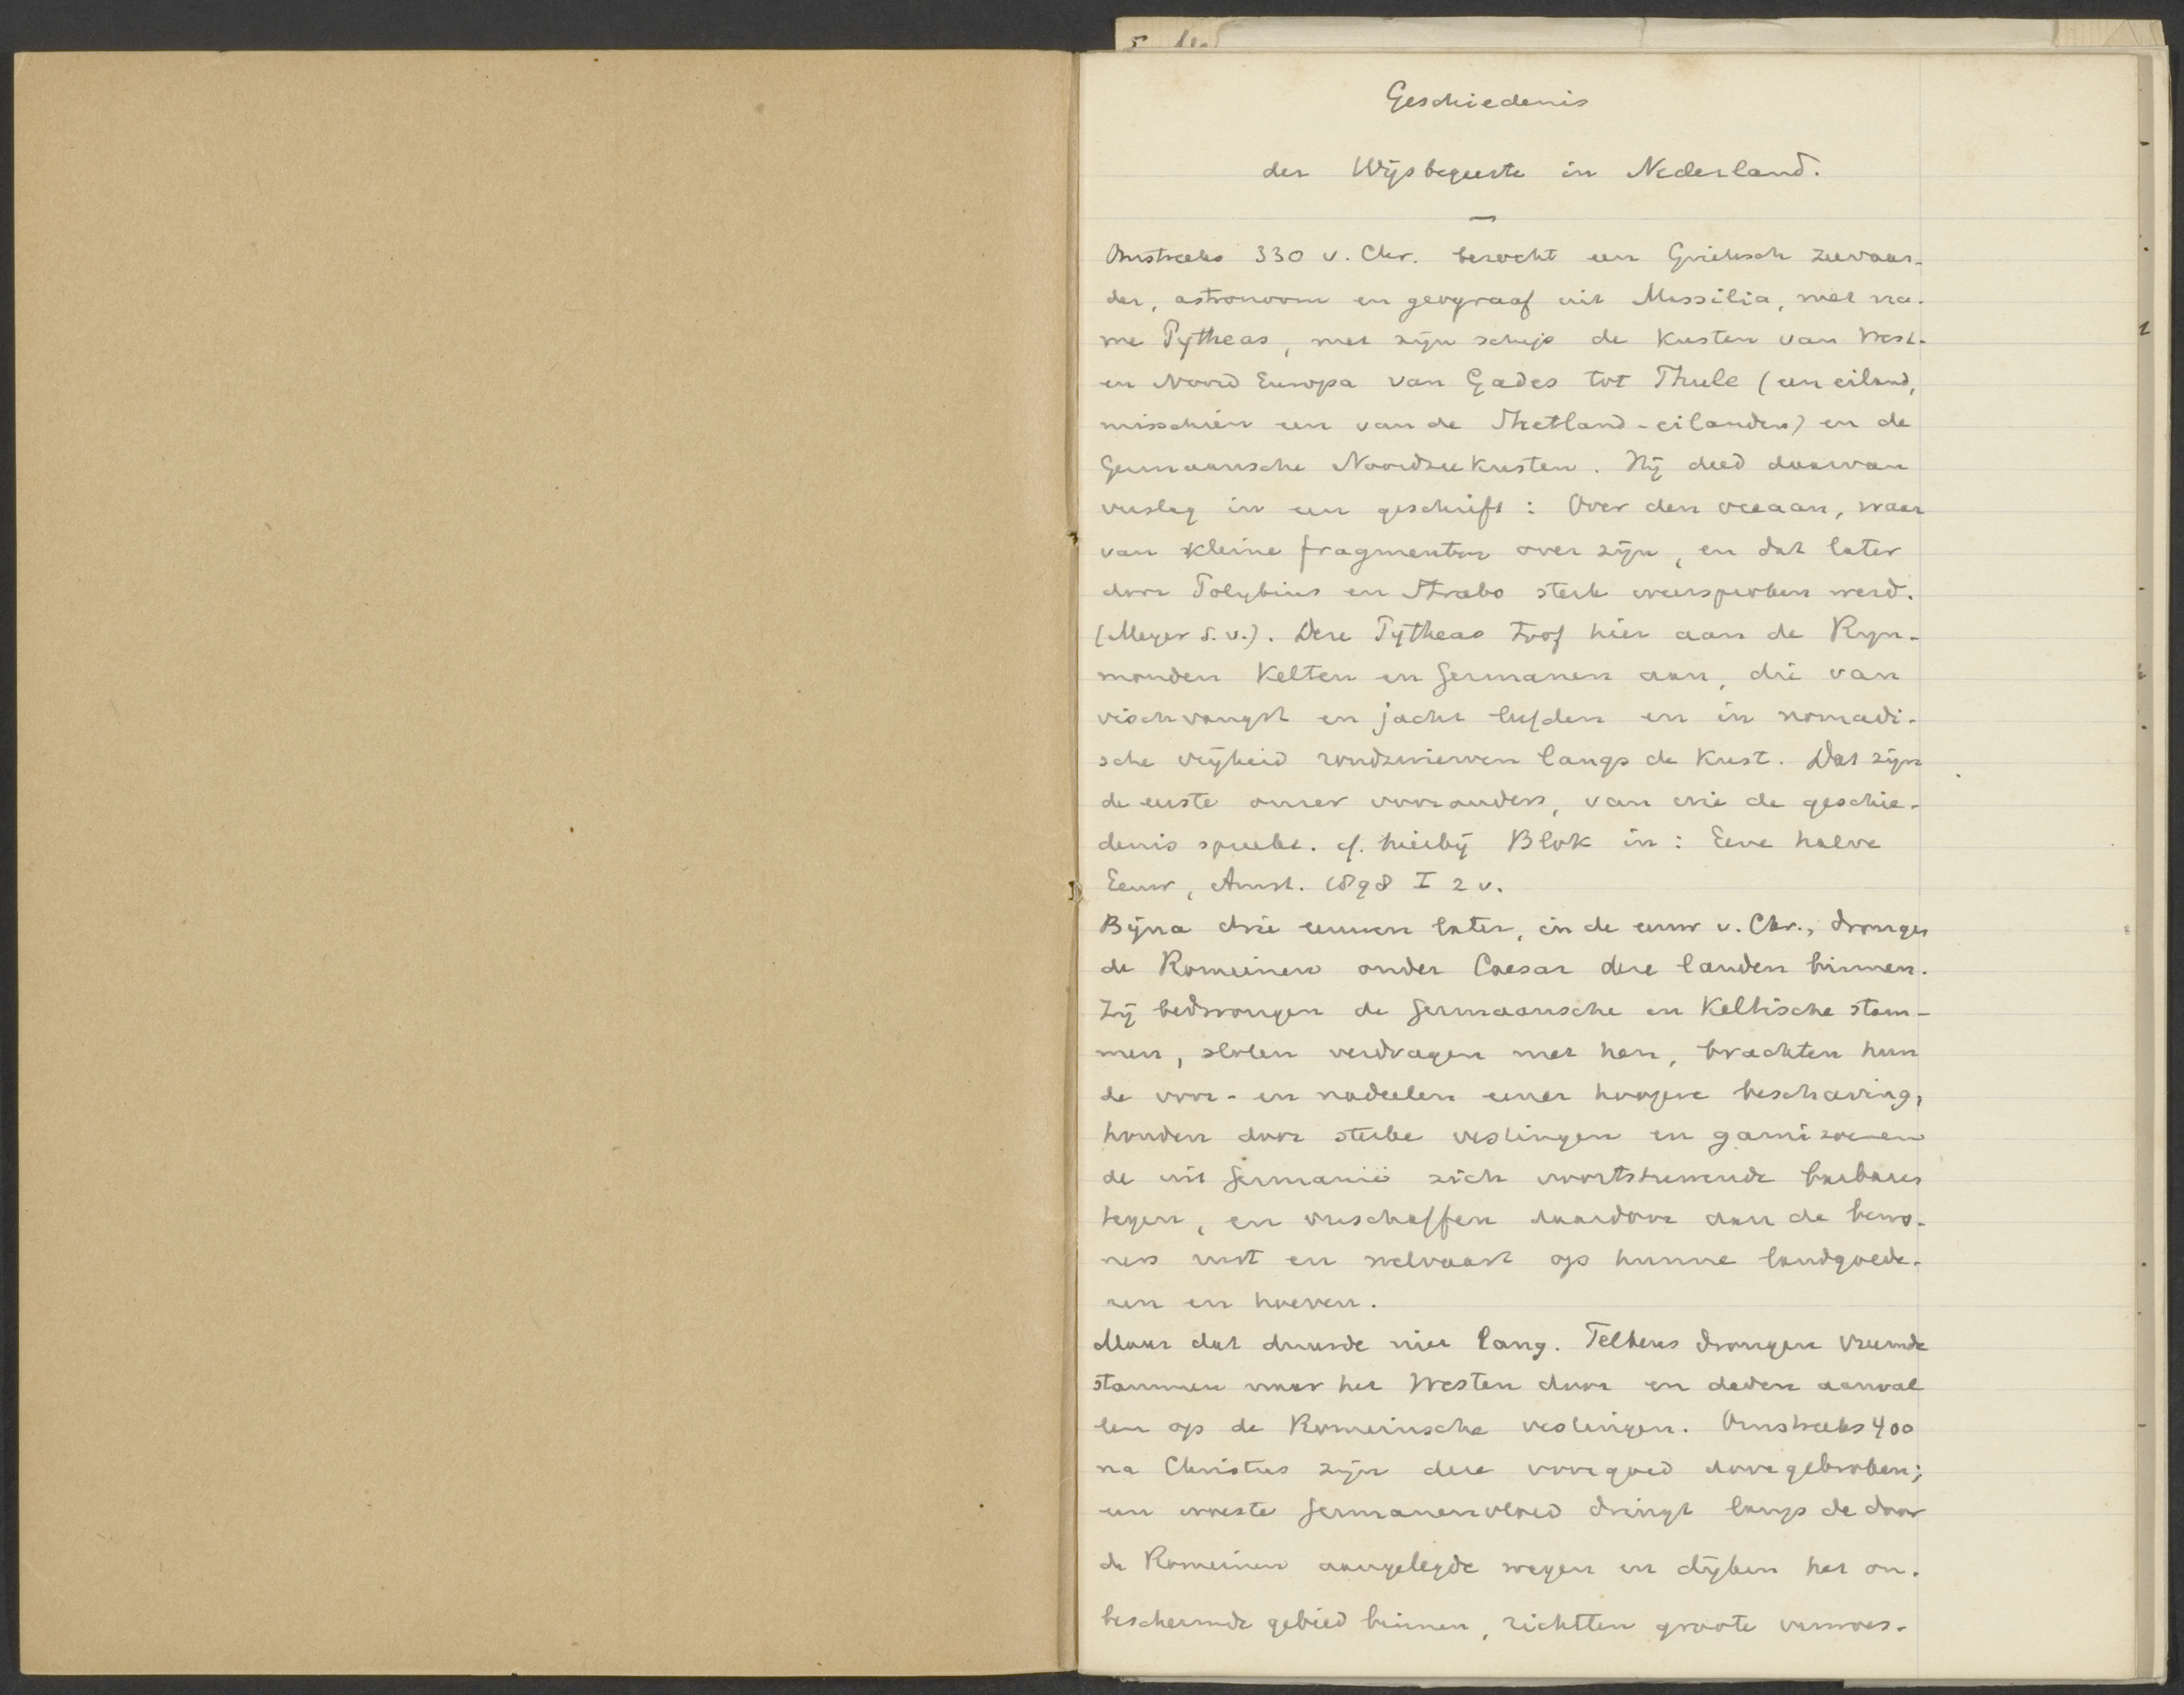 Geschiedenis
der Wijsbegeerte in Nederland.
Omstreeks 330 v. Chr. bezocht een Grieksch zeevaar-
der, astronoom en geograaf uit Massilia, met na-
me Pytheas, met zijn schip de kusten van West-
en Noord Europa van Gades tot Thule (een eiland,
misschien een van de Shetland-eilanden) en de
Germaansche Noordzeekusten. Hij deed daarvan
verslag in een geschrift: Over den oceaan, waar
van kleine fragmenten over zijn, en dat later
door Polybius en Strabo sterk weersproken werd.
(Meyer s.v.). Deze Pytheas trof hier aan de Rijn-
monden Kelten en Germanen aan, die van
vischvangst en jacht leefden en in nomadi-
sche vrijheid rondzwierven langs de kust. Dat zijn
de eerste onzer voorouders, van wie de geschie-
denis spreekt. cf. hierbij Blok in: Eene halve
Eeuw, Amst. 1898 I 2 v.
Bijna drie eeuwen later, in de eeuw v. Chr., drongen
de Romeinen onder Caesar deze landen binnen.
Zij bedwongen de Germaansche en Keltische stam-
men, sloten verdragen met hen, brachten hun
de voor- en nadeelen eener hoogere beschaving,
houden door sterke vestingen en garnizoenen
de uit Germanië zich voortstuwende barbaren
tegen, en verschaffen daardoor aan de bewo-
ners rust en welvaart op hunne landgoede-
ren en hoeven.
Maar dat duurde niet lang. Telkens drongen vreemde
stammen naar het Westen door en deden aanval
len op de Romeinsche vestingen. Omstreeks 400
na Christus zijn deze voorgoed doorgebroken;
een woeste Germanenvloed dringt langs de door
de Romeinen aangelegde wegen en dijken het on-
beschermde gebied binnen, richtten groote verwoes-